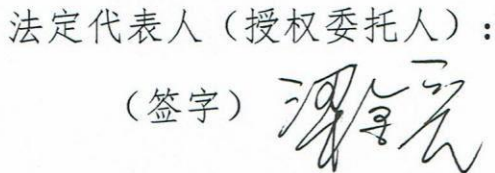 法定代表人（授权委托人）：
（签字）